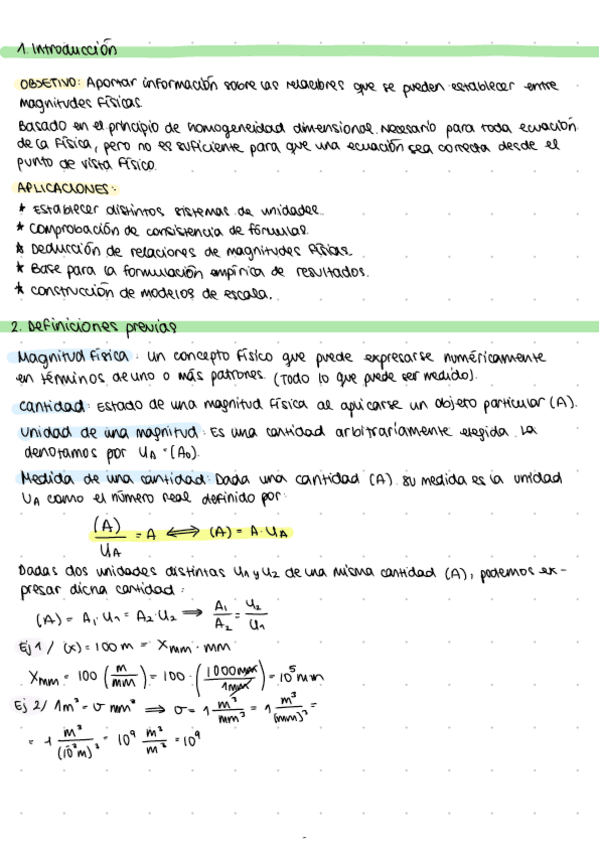 1. Introducción
OBJETIVO: Aportar información sobre las relaciones que se pueden establecer entre
magnitudes físicas.
Basado en el principio de homogeneidad dimensional. Necesario para toda ecuación
de la Física, pero no es suficiente para que una ecuación sea correcta desde el
punto de vista físico.
APLICACIONES:
* Establecer distintos sistemas de unidades.
* Comprobación de consistencia de fórmulas.
* Deducción de relaciones de magnitudes físicas.
* Base para la formulación empírica de resultados.
* Construcción de modelos de escala.
2. Definiciones previas
Magnitud física: Un concepto físico que puede expresarse numéricamente
en términos de uno o más patrones. (Todo lo que puede ser medido).
Cantidad: Estado de una magnitud física al aplicarse un objeto particular (A).
Unidad de una magnitud: Es una cantidad arbitrariamente elegida. La
denotamos por U_A = (A_0).
Medida de una cantidad: Dada una cantidad (A). Su medida es la unidad
U_A como el número real definido por:
(A)/U_A = A ⟺ (A) = A · U_A
Dadas dos unidades distintas U_1 y U_2 de una misma cantidad (A), podemos ex-
presar dicha cantidad:
(A) = A_1 · U_1 = A_2 · U_2 ⟹ A_1/A_2 = U_2/U_1
Ej 1/ (x) = 100 m = X_mm · mm
X_mm = 100 (m/mm) = 100 · (1000 mm/1 mm) = 10^5 mm
Ej 2/ 1m³ = σ mm³ ⟹ σ = 1 m³/mm³ = 1 m³/(mm)³ =
= 1 m³/(10^-3 m)³ = 10^9 m³/m³ = 10^9